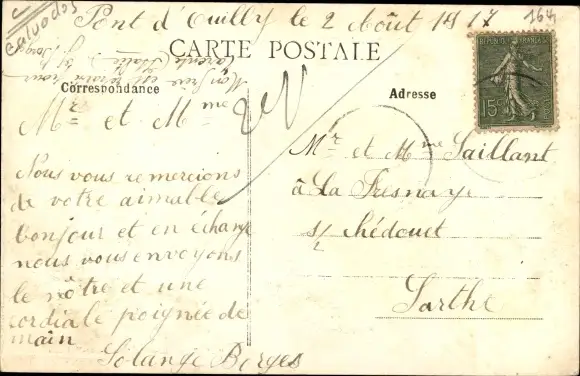 Calvados
Pont d'Ouilly le 2 Août 1917
164
CARTE POSTALE
Correspondance
Adresse
REPUBLIQUE FRANÇAISE
15c
Mr et Mme
Nous vous remercions
de votre aimable
bonjour et en échange
nous vous envoyons
le nôtre et une
cordiale poignée de
main
Solange Borges
Mr et Mme Saillant
à La Fresnaye
s/ Chédouet
Sarthe
Mon frère est
(Italie)